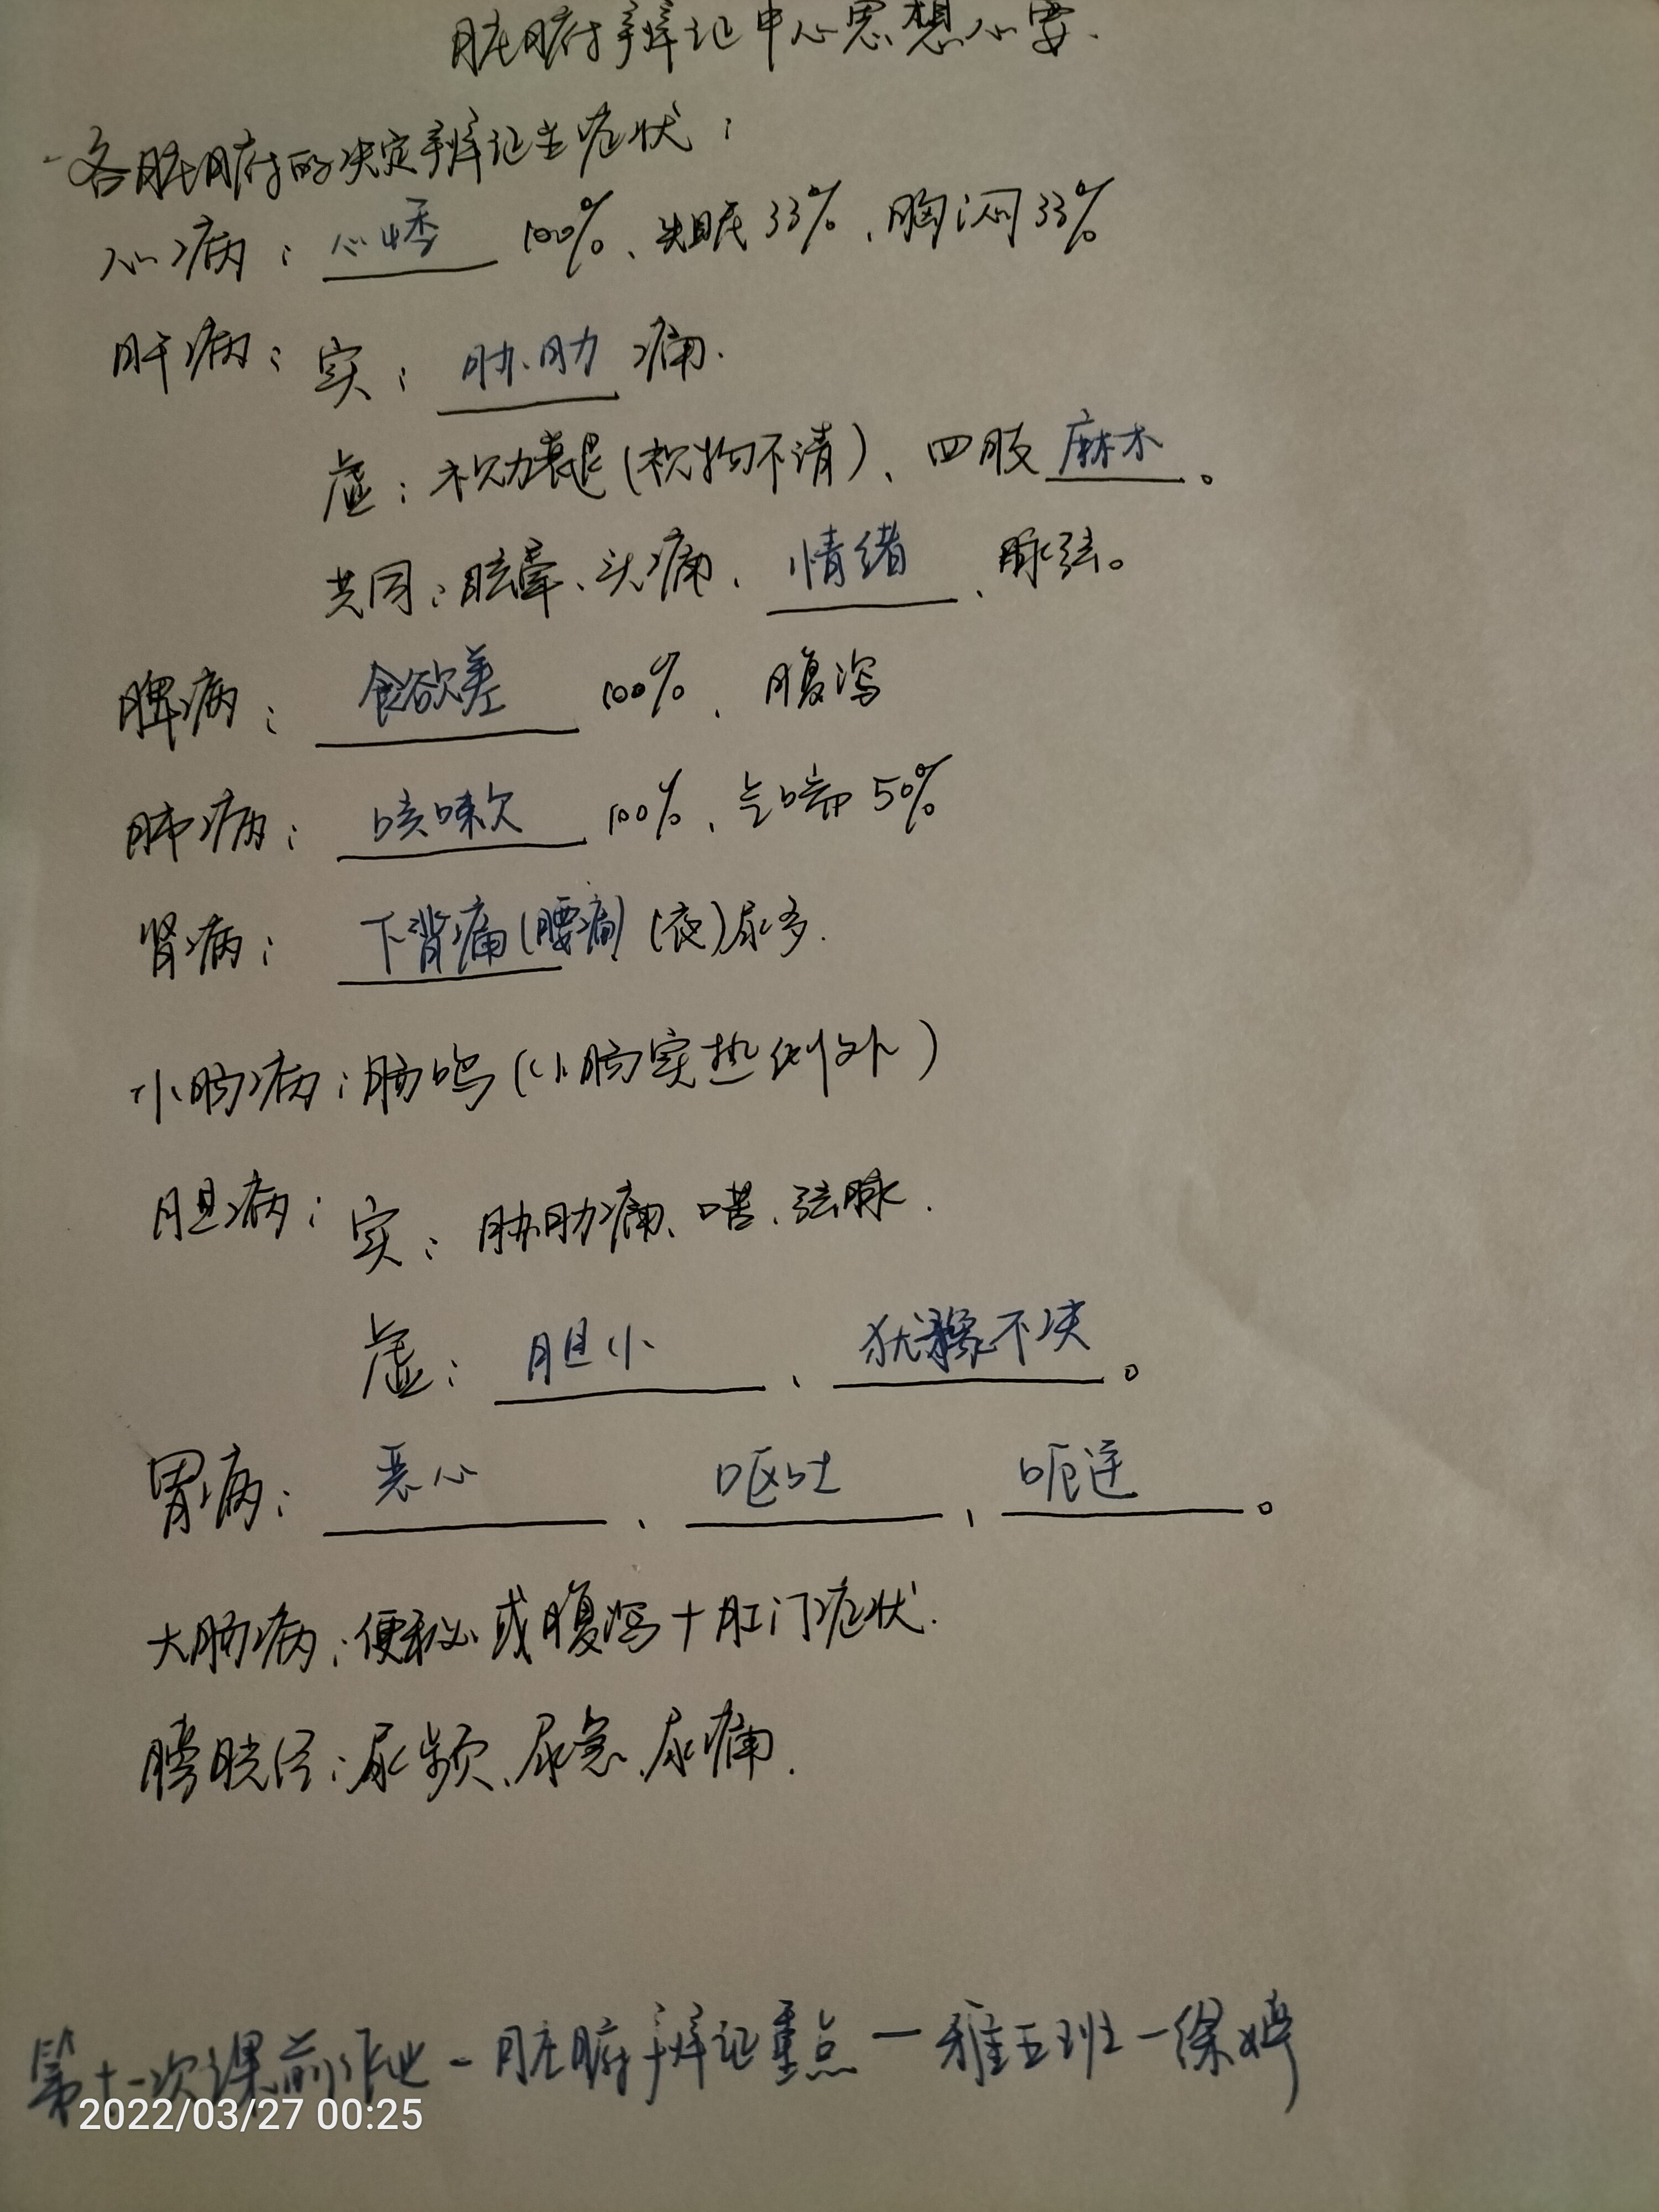 脏腑辩证中心思想心要.
各脏腑的决定辨证主症状:
心病: 心悸 100%、失眠33%、胸闷33%
肝病: 实: 胁.肋 痛.
虚: 视力衰退(视物不清)、四肢 麻木。
共同: 眩晕、头痛、情绪、脉弦。
脾病: 食欲差 100%、腹泻
肺病: 咳嗽 100%、气喘50%
肾病: 下背痛(腰痛)(夜)尿多.
小肠病: 肠鸣(小肠实热例外)
胆病: 实: 胁肋痛、口苦、弦脉.
虚: 胆小、犹豫不决。
胃病: 恶心、呕吐、呃逆。
大肠病: 便秘或腹泻+肛门症状.
膀胱经: 尿频、尿急、尿痛.
第十一次课前作业-脏腑辩证重点-雅五班-徐婷
2022/03/27 00:25